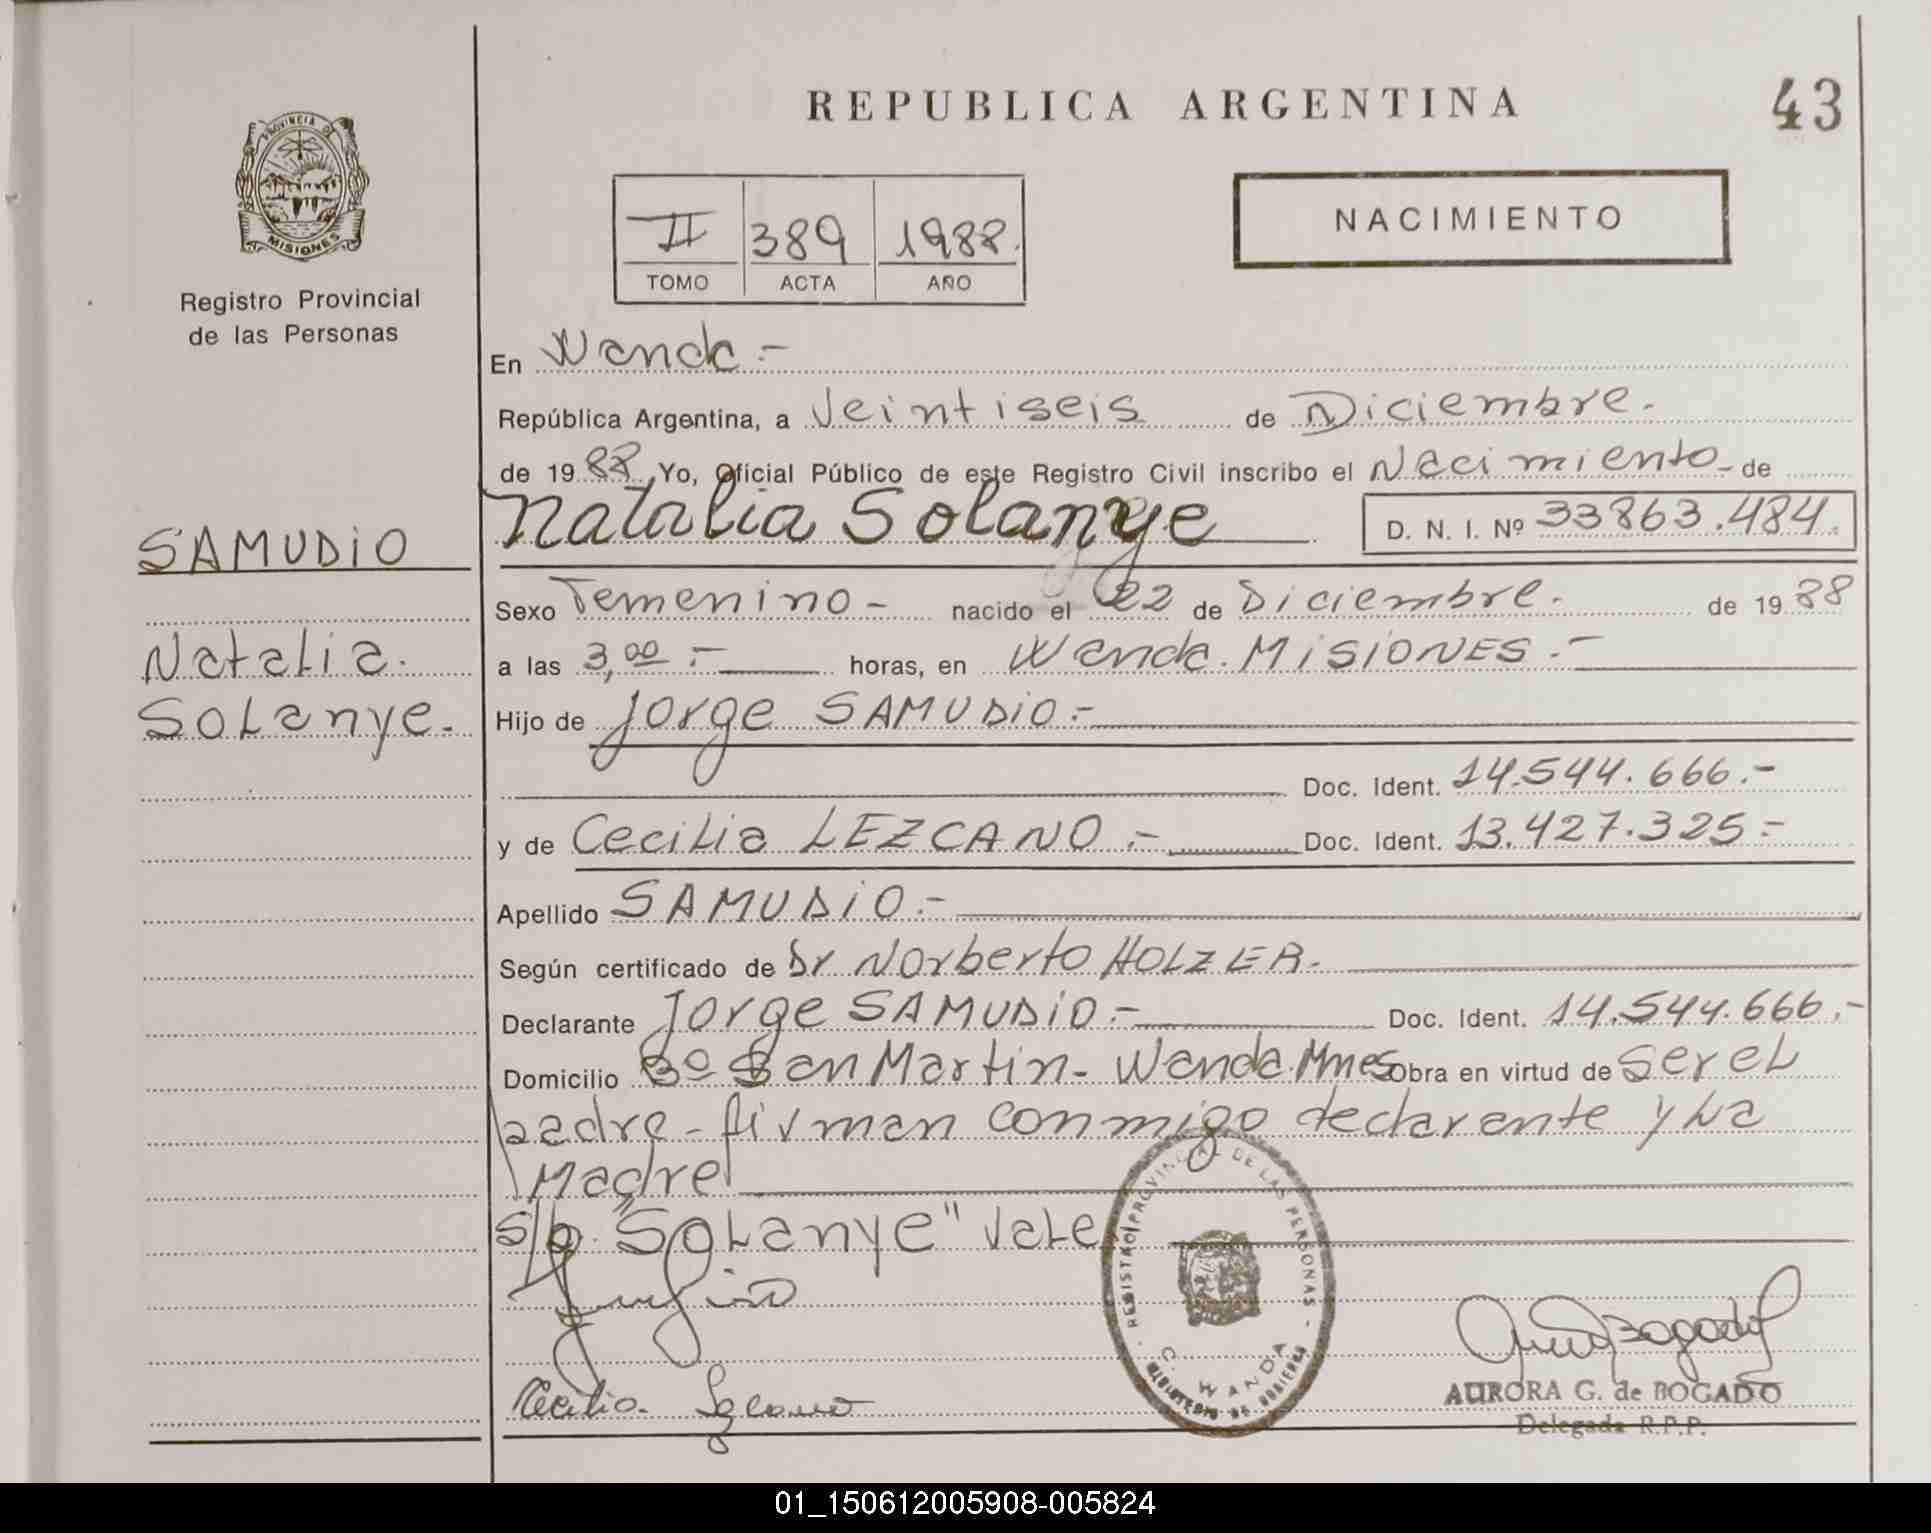 REPUBLICA ARGENTINA
43
PROVINCIA DE
MISIONES
Registro Provincial
de las Personas
II 389 1988.
TOMO ACTA AÑO
NACIMIENTO
En Wanda.-
República Argentina, a Veintiseis de Diciembre.
de 1988. Yo, Oficial Público de este Registro Civil inscribo el Nacimiento- de
SAMUDIO
Natalia Solanye D. N. I. Nº 33863.484.
Sexo Femenino- nacido el 22 de Diciembre. de 1988
Natalia.
a las 3,00.- horas, en Wanda. MISIONES.-
Solanye.
Hijo de Jorge SAMUDIO.-
Doc. Ident. 14.544.666.-
y de Cecilia LEZCANO.- Doc. Ident. 13.427.325.-
Apellido SAMUDIO.-
Según certificado de Dr Norberto HOLZER.
Declarante Jorge SAMUDIO.- Doc. Ident. 14.544.666.-
Domicilio Bº San Martin- Wanda Mnes Obra en virtud de ser el
padre- firman conmigo declarante y la
Madre
s/b. "Solanye" Vale
REGISTRO PROVINCIAL DE LAS PERSONAS
C. WANDA
MINISTERIO DE GOBIERNO
Cecilia Lezcano
AURORA G. de BOGADO
Delegada R.P.P.
01_150612005908-005824